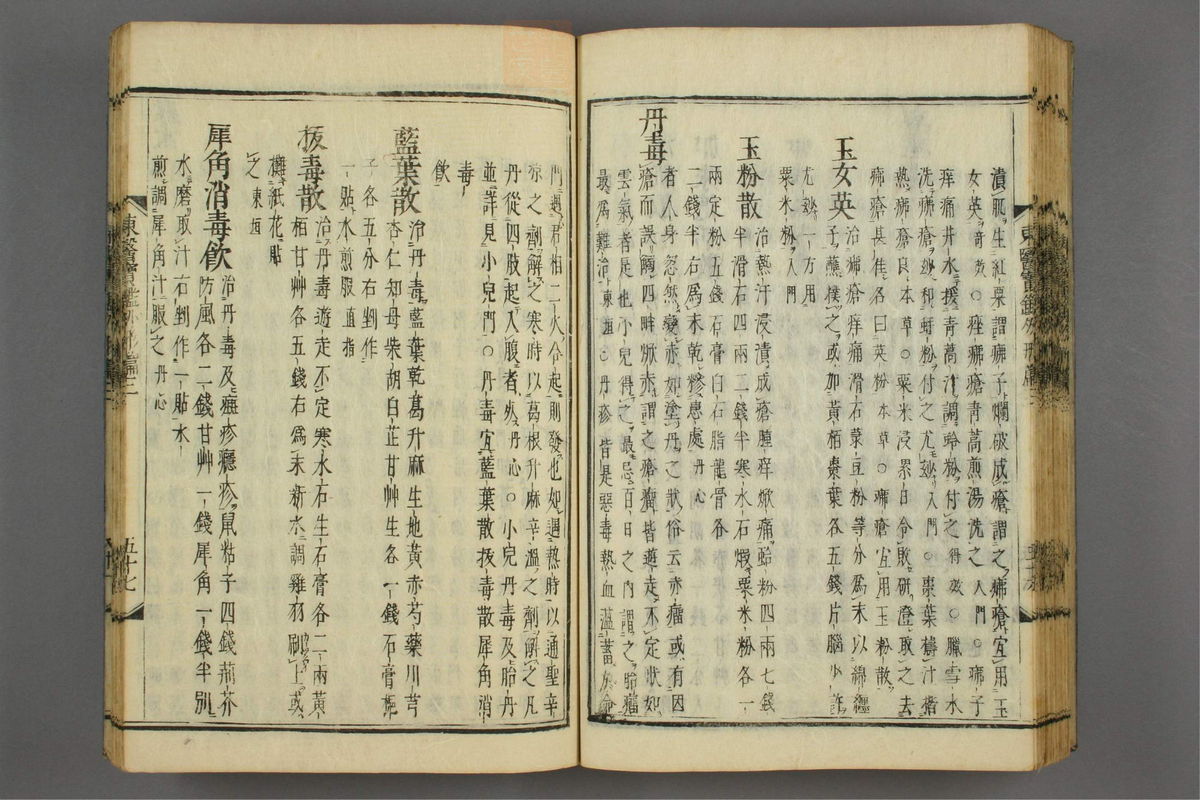 潰肌生紅粟謂痱子爛破成瘡謂之痱瘡宜用玉
女英奇效○痤痱瘡青蒿煎湯洗之入門○痱子
痒痛井水挼青蒿汁調蛤粉付之得效○臘雪水
洗痱瘡妙和蚌粉付之尤妙入門○棗葉擣汁揩
熱痱瘡良本草○粟米浸累日令敗研澄取之去
痱瘡甚佳名曰英粉本草○痱瘡宜用玉粉散
玉女英 治痱瘡痒痛滑石菉豆粉等分爲末以綿纏
子蘸撲之或加黃栢棗葉各五錢片腦少許
尤妙一方用
粟米粉入門
玉粉散 治熱汗浸漬成瘡腫痒焮痛蛤粉四兩七錢
半滑石四兩二錢半寒水石煆粟米粉各一
兩定粉五錢石膏白石脂龍骨各
二錢半右爲末乾糝患處丹心
丹毒 者人身忽然變赤如塗丹之狀俗云赤瘤或有因
瘡而誤觸四畔焮赤謂之瘡瘤皆遊走不定狀如
雲氣者是也小兒得之最忌百日之內謂之胎瘤
最爲難治東垣○丹疹皆是惡毒熱血蘊蓄於命
東醫寶鑑外形篇三
門遇君相二火合起則發也如遇熱時以通聖辛
凉之劑解之寒時以葛根升麻辛溫之劑解之凡
丹從四肢起入腹者死丹心○小兒丹毒及胎丹
並詳見小兒門○丹毒宜藍葉散拔毒散犀角消
毒
飮
藍葉散 治丹毒藍葉乾葛升麻生地黃赤芍藥川芎
杏仁知母柴胡白芷甘艸生各一錢石膏梔
子各五分右剉作
一貼水煎服直指
拔毒散 治丹毒遊走不定寒水石生石膏各二兩黃
栢甘艸各五錢右爲末新水調雞羽刷上或
櫵紙花貼
之東垣
犀角消毒飮 治丹毒及癍疹癮疹鼠粘子四錢荊芥
防風各二錢甘艸一錢犀角一錢半別
水磨取汁右剉作一貼水
煎調犀角汁服之丹心
東醫寶鑑外形篇三
五十七